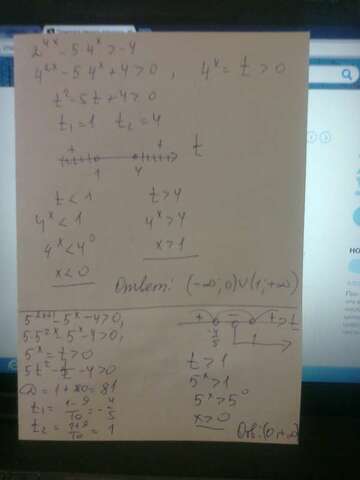 2^{4x} - 5·4^x > -4
4^{2x} - 5·4^x + 4 > 0, 4^x = t > 0
t² - 5t + 4 > 0
t₁ = 1 t₂ = 4
+ - + t
1 4
t < 1 t > 4
4^x < 1 4^x > 4
4^x < 4^0 x > 1
x < 0
Ответ: (-∞; 0) ∪ (1; +∞)
5^{2x+1} - 5^x - 4 > 0,
5·5^{2x} - 5^x - 4 > 0,
5^x = t > 0
5t² - t - 4 > 0
D = 1 + 80 = 81
t₁ = (1-9)/10 = -4/5
t₂ = (1+9)/10 = 1
+ - + t
-4/5 0 1
t > 1
5^x > 1
5^x > 5^0
x > 0
Отв: (0; +∞)